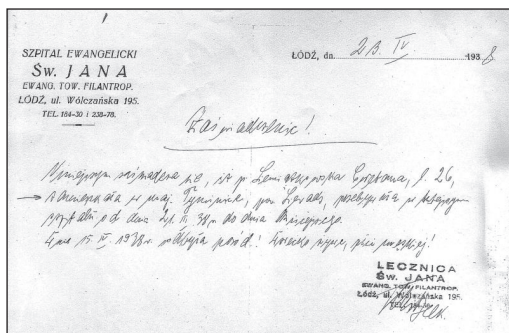 SZPITAL EWANGELICKI
ŚW. JANA
EWANG. TOW. FILANTROP.
ŁÓDŹ, ul. Wólczańska 195.
TEL. 184-30 i 238-78.
ŁÓDŹ, dn. 23. IV 1938
Zaświadczenie!
Niniejszym zaświadcza się, iż p. 26,
zamieszkała w maj. pow. przebywała w tutejszym
szpitalu od dnia 38 r. do dnia dzisiejszego.
Dnia 15. IV. 1938 r. odbyła poród! Dziecko żywe, płci męskiej!
LECZNICA
ŚW. JANA
EWANG. TOW. FILANTROP.
Łódź, ul. Wólczańska 195.